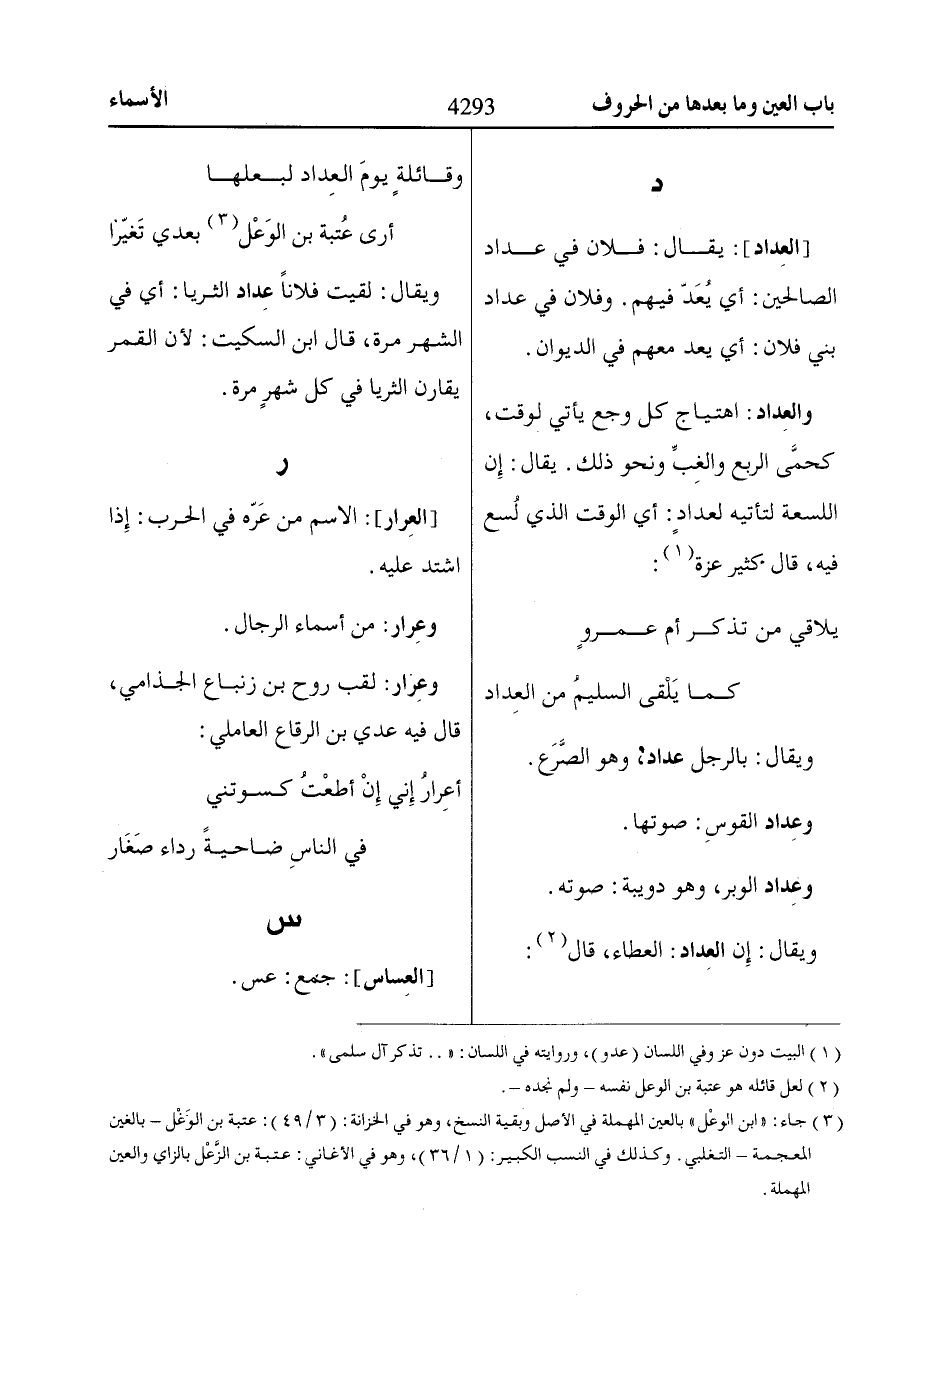 باب العين وما بعدها من الحروف
4293
الأسماء
د
[العِداد]: يقال: فلان في عداد
الصالحين: أي يُعَدّ فيهم. وفلان في عداد
بني فلان: أي يعد معهم في الديوان.
والعِداد: اهتياج كل وجع يأتي لوقت،
كحمَّى الربع والغِبِّ ونحو ذلك. يقال: إن
اللسعة لتأتيه لعدادٍ: أي الوقت الذي لُسع
فيه، قال كثير عزة(١):
يلاقي من تذكر أم عمروٍ
كما يَلْقى السليمُ من العِداد
ويقال: بالرجل عداد؛ وهو الصَّرَع.
وعِداد القوسِ: صوتها.
وعِداد الوبر، وهو دويبة: صوته.
ويقال: إن العِداد: العطاء، قال(٢):
وقائلةٍ يومَ العِداد لبعلها
أرى عُتبة بن الوَعْل(٣) بعدي تَغيّرا
ويقال: لقيت فلاناً عِداد الثريا: أي في
الشهر مرة، قال ابن السكيت: لأن القمر
يقارن الثريا في كل شهرٍ مرة.
ر
[العِرار]: الاسم من عَرّه في الحرب: إذا
اشتد عليه.
وعِرار: من أسماء الرجال.
وعِرار: لقب روح بن زنباع الجذامي،
قال فيه عدي بن الرقاع العاملي:
أعِرارُ إني إنْ أطعْتُ كسوتني
في الناسِ ضاحيةً رداء صَغَار
س
[العِساس]: جمع: عس.
(١) البيت دون عزو في اللسان (عدو)، وروايته في اللسان: «.. تذكر آل سلمى».
(٢) لعل قائله هو عتبة بن الوعل نفسه – ولم نجده –.
(٣) جاء: «ابن الوعْل» بالعين المهملة في الأصل وبقية النسخ، وهو في الخزانة: (٤٩/٣): عتبة بن الوَغْل – بالغين
المعجمة – التغلبي. وكذلك في النسب الكبير: (٣٦/١)، وهو في الأغاني: عتبة بن الزَّعْل بالزاي والعين
المهملة.